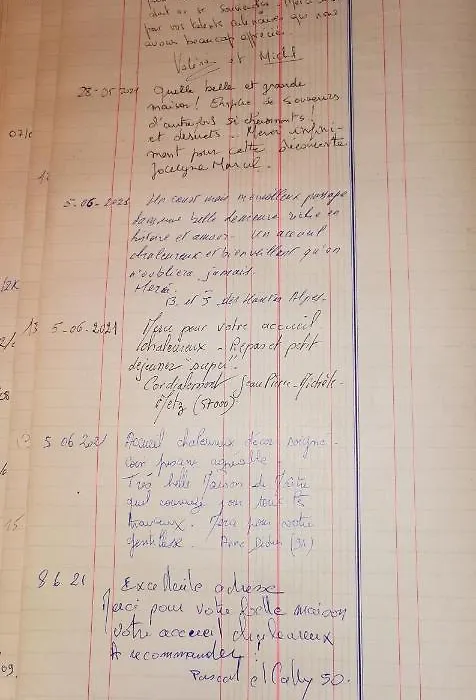 pour vos talents culinaires que nous
avons beaucoup apprécié.
Valérie et Michel
28-05-2021 Quelle belle et grande
maison ! Emplie de souvenirs
d'autrefois si charmants
et désuets - Merci infini-
ment pour cette découverte
Jocelyne Marcel.
07/0
5-06-2021 Un court mais merveilleux passage
dans une belle demeure riche en
histoire et amour. Un accueil
chaleureux et bienveillant qu'on
n'oubliera jamais.
Merci.
B. et J. des Hautes Alpes.
13 5-06-2021 Merci pour votre accueil
chaleureux - Repas et petit
déjeuner "super".
Cordialement Jean Pierre - Michèle -
Metz (57000)
5 06 2021 Accueil chaleureux décor soigné -
coin piscine agréable
Très belle Maison de Maître
quel courage pour tous ces
travaux. Merci pour votre
gentillesse. Anne Didier (31)
15
8 6 21 Excellente adresse
Merci pour votre belle maison
votre accueil chaleureux
A recommander !
Pascal et Cathy 50.
09